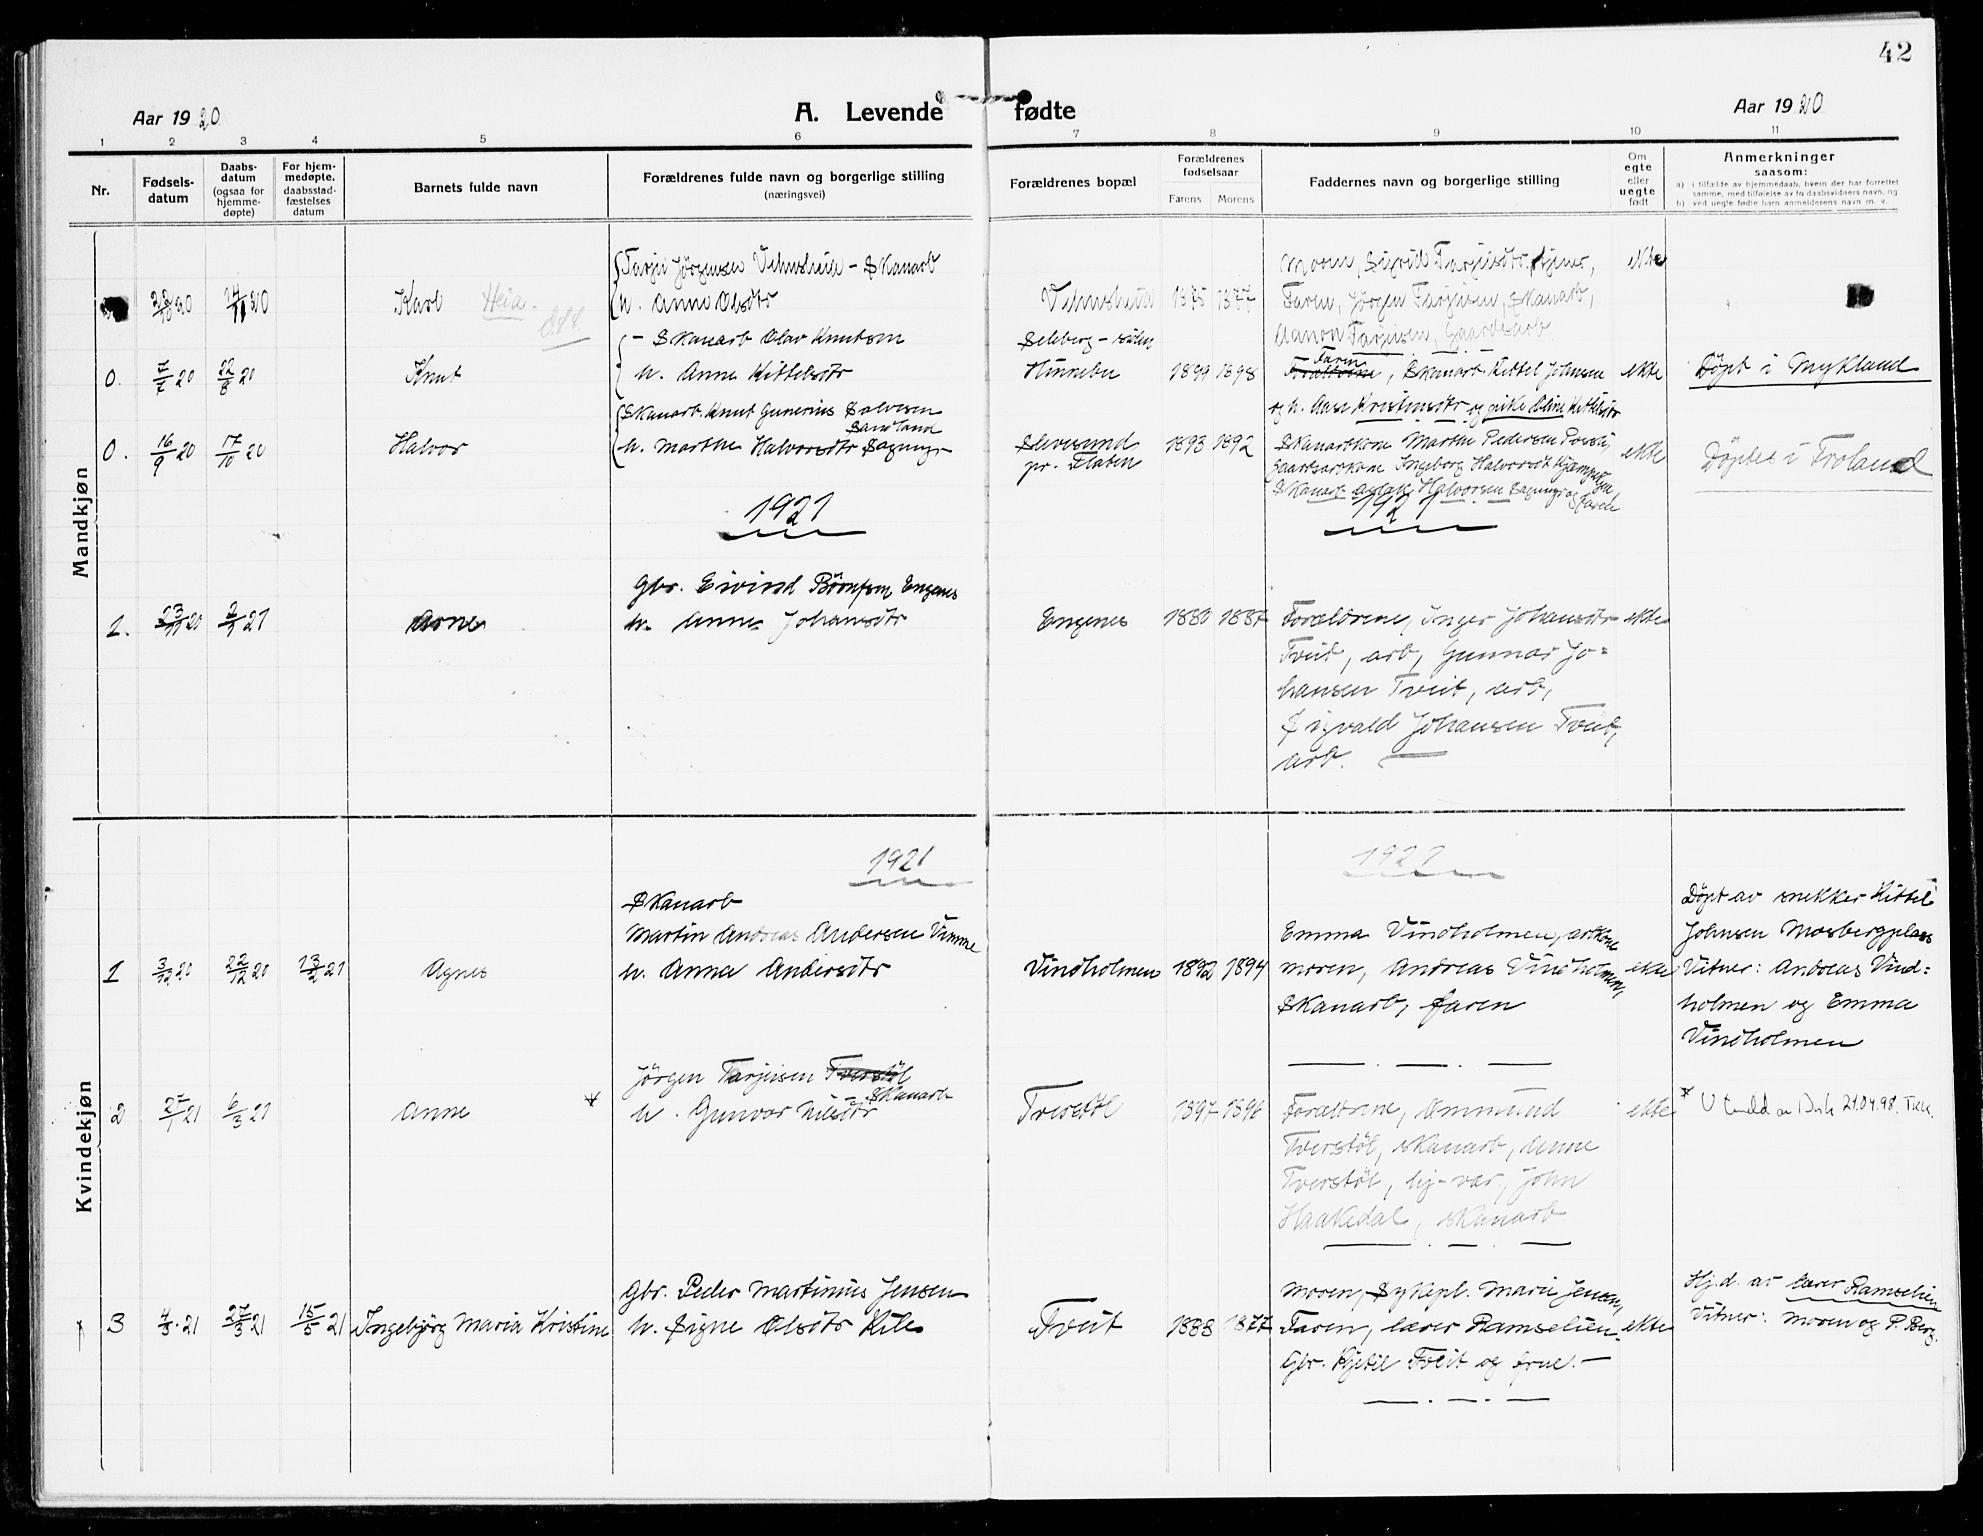 42
Aar 1920
A. Levende fødte
Aar 1920
1 2 3 4 5 6 7 8 9 10 11
Nr.
Fødsels-
datum
Daabs-
datum
(ogsaa for
hjemme-
døpte)
For hjem-
medøpte,
daabsstad-
fæstelses
datum
Barnets fulde navn
Forældrenes fulde navn og borgerlige stilling
(næringsvei)
Forældrenes bopæl
Forældrenes
fødselsaar
Farens Morens
Faddernes navn og borgerlige stilling
Om
egte
eller
uegte
født
Anmerkninger
saasom:
a) i tilfælde av hjemmedaab, hvem der har forrettet
samme, med tilføielse av to daabsvidners navn, og
b) ved uegte fødte barn anmelderens navn m. v.
Mandkjøn
Tarjei Jørgensen - Skanarb
h. Anne Olsdtr
23/10 20 14/11 20 Karl Heia.
1875 1877
Moren, Sigrid Tarjeisdtr, tjener,
Faren, Jørgen Tarjeisen, skanarb,
Aanon Tarjeisen, Gaardsarb
ekte
- Skanarb Olav Knutsen
0. 7/7 20 22/8 20 Knut
h. Anne Kittelsdtr
Selberg
Hinnebu 1899 1898
Faren
Forældrene, Skanarb. Kittel Johnsen ekte
og h. Aase Kristensdtr og pike Oline Kittelsdtr
Døpt i Mykland
Skanarb. Knut Gunerius Salvesen
Sandland
0. 16/9 20 17/10 20 Halvor
h. Marthe Halvorsdtr
pr. Flaten 1893 1892
Skanarbkone Marthe Pedersen
gaardsarbkone Ingeborg Halvorsdt
Skanarb Aslak Halvorsen og faren
ekte
Døptes i Froland
1921
1921
Gbr. Eivind Børufsen Engenes
1. 23/11 20 2/1 21 Arne
h. Anne Johansdtr
Engenes 1880 1887
Forældrene, Inger Johansdtr ekte
Tveit, arb, Gunnar Jo=
hansen Tveit, arb,
Sigvald Johansen Tveit,
arb.
Kvindekjøn
1921
1921
Skanarb
Martin Andreas Andersen
1 3/12 20 22/12 20 13/2 21 Agnes
h. Anna Andersdtr
Vindholmen 1892 1894
Emma Vindholmen, arbkone
moren, Andreas Vindholmen, ekte
Skanarb, faren
Døpt av snekker Kittel
Johnsen Mosbergplass
Vitner: Andreas Vind=
holmen og Emma
Vindholmen
Jørgen Tarjeisen Tverstøl
Skanarb
2 25/1 21 6/3 21 Anne *
h. Gunvor Nilsdtr
Tverstøl 1897 1896
Forældrene, Ommund
Tverstøl, skanarb, Anne
Tverstøl, hj-vær, John
Haakedal, skanarb
ekte
* 21.04.98.
Gbr. Peder Martinius Jensen
3 4/3 21 27/3 21 15/5 21 Ingebjørg Maria Kristine
h. Signe Olsdtr Kile
Tveit 1888 1877
Moren, Sykepl. Marie Jensen,
Faren, lærer Ramselien ekte
Gbr. Kjetil Tveit og frue.-
Hj.d. av lærer Ramselien
Vitner: moren og P. Berg.